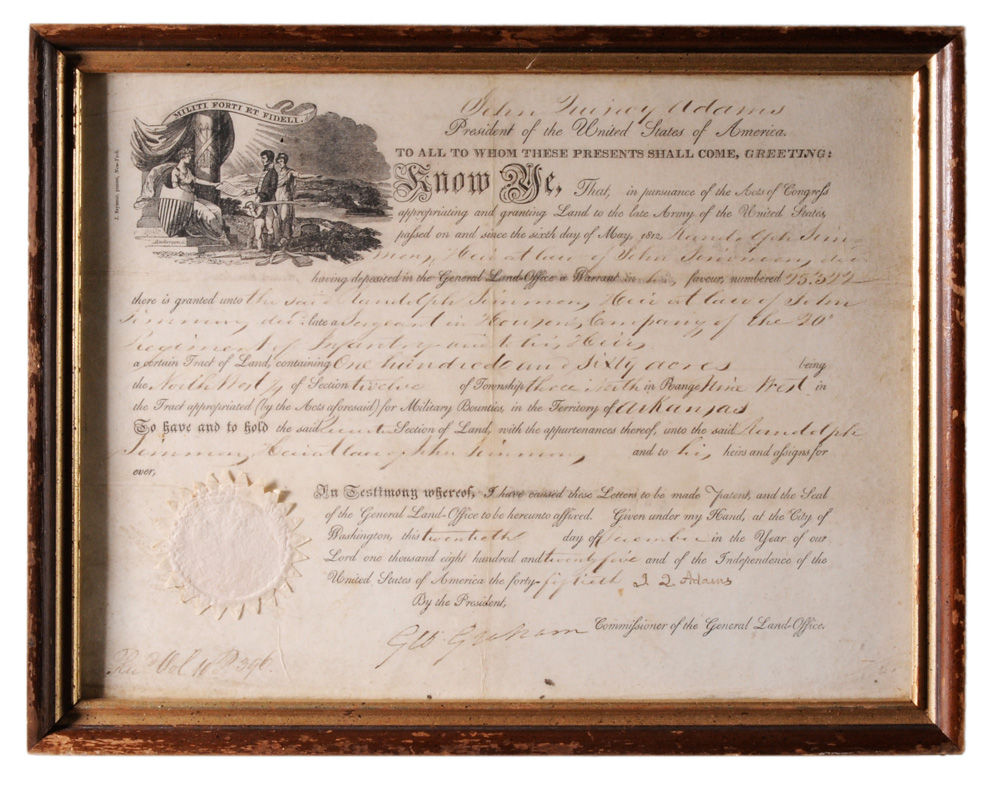 MILITI FORTI ET FIDELI.
John Quincy Adams
President of the United States of America.
TO ALL TO WHOM THESE PRESENTS SHALL COME, GREETING:
Know Ye, That, in pursuance of the Acts of Congress
appropriating and granting Land to the late Army of the United States,
passed on and since the sixth day of May, 1812, Randolph Sim
mons, Heir at law of John Simmons, dec
having deposited in the General Land-Office a Warrant in his favour, numbered
there is granted unto the said Randolph Simmons, Heir at law of John
Simmons, dec late a Sergeant in Company of the 20
Regiment of Infantry and to his Heirs
a certain Tract of Land, containing One hundred and sixty acres being
the North West ¼ of Section twelve of Township three South in Range Nine West in
the Tract appropriated (by the Acts aforesaid) for Military Bounties, in the Territory of Arkansas
To have and to hold the said quarter Section of Land, with the appurtenances thereof, unto the said Randolph
Simmons, Heir at law of John Simmons, and to his heirs and assigns for
ever,
In Testimony whereof, I have caused these Letters to be made Patent, and the Seal
of the General Land-Office to be hereunto affixed. Given under my Hand, at the City of
Washington, this twentieth day of December in the Year of our
Lord one thousand eight hundred and twenty five and of the Independence of the
United States of America the forty-fiftieth J. Q. Adams
By the President,
Geo Graham Commissioner of the General Land-Office.
Rec Vol 10 P 396